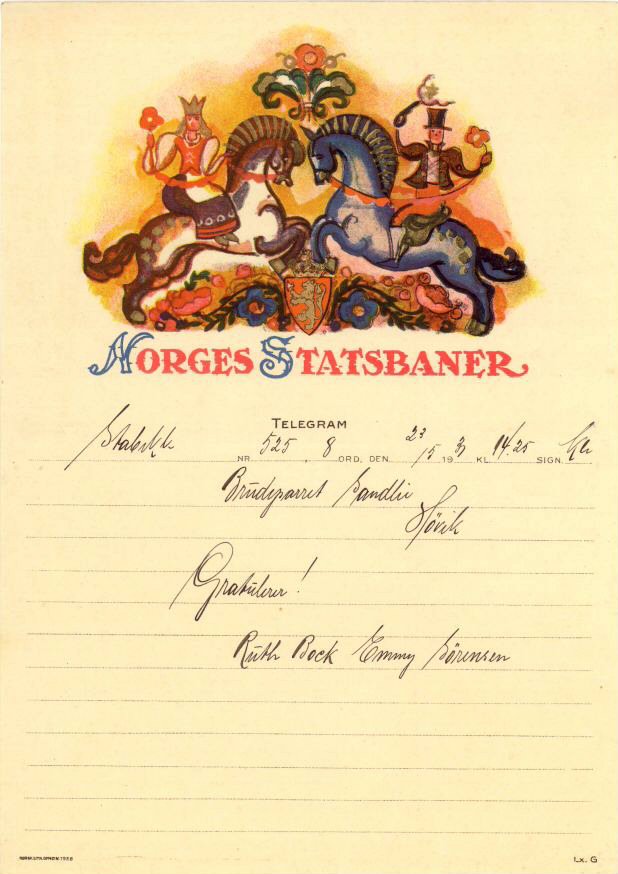 NORGES STATSBANER
TELEGRAM
Stabekk NR. 525, 8 ORD, DEN 23/5 19 KL. 14.25 SIGN.
Brudeparret Sandlie
Høvik
Gratulerer!
Ruth Bock Emmy Sörensen
Lx. G